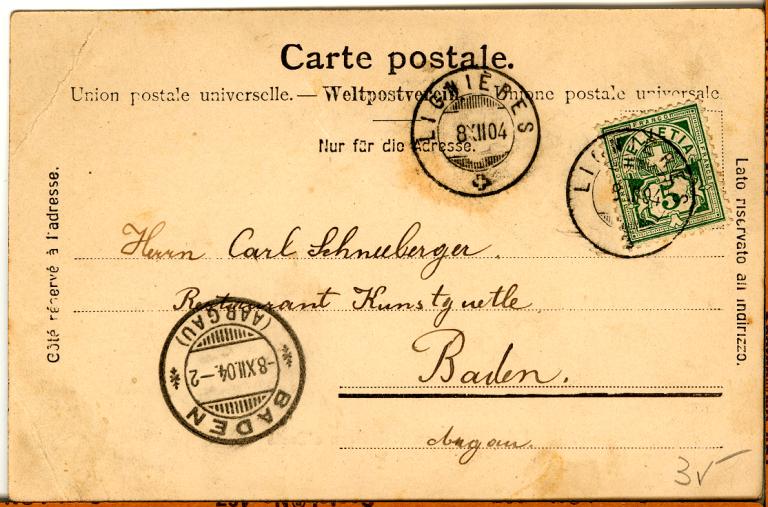 Carte postale.
Union postale universelle. — Weltpostverein. — Unione postale universale
Nur für die Adresse.
Côté réservé à l'adresse.
Lato riservato all indirizzo.
LIGNIÈRES
8 XII 04
HELVETIA
FRANCO
5
LIGNIÈRES
Herrn Carl Schneeberger.
Restaurant Kunstguetle
Baden.
Aargau.
BADEN
(AARGAU)
-8.XII.04.-2
3